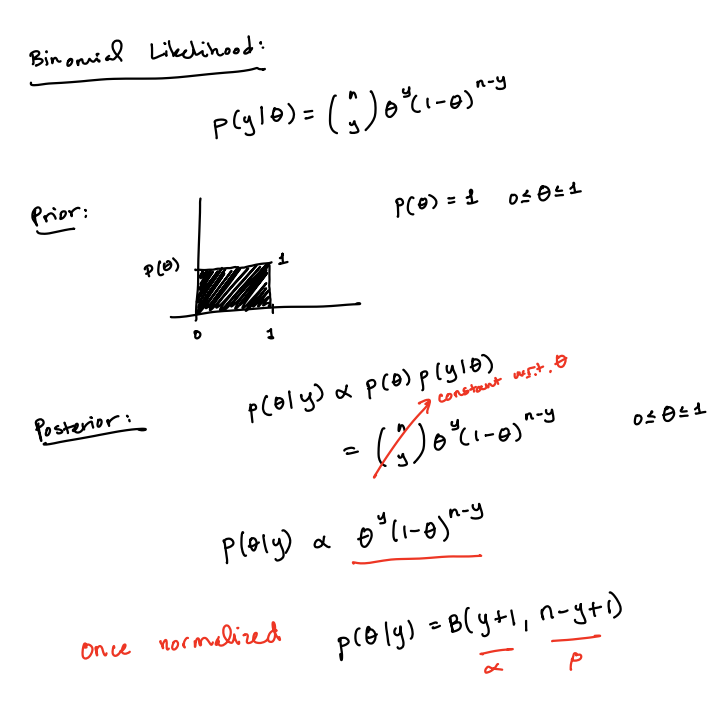 Binomial Likelihood:
p(y|θ) = (n y) θ^y (1-θ)^{n-y}
Prior:
p(θ) = 1   0≤θ≤1
p(θ)
1
0   1
Posterior:
p(θ|y) ∝ p(θ) p(y|θ)
constant w.r.t. θ
= (n y) θ^y (1-θ)^{n-y}   0≤θ≤1
p(θ|y) ∝ θ^y (1-θ)^{n-y}
Once normalized   p(θ|y) = B(y+1, n-y+1)
α   β